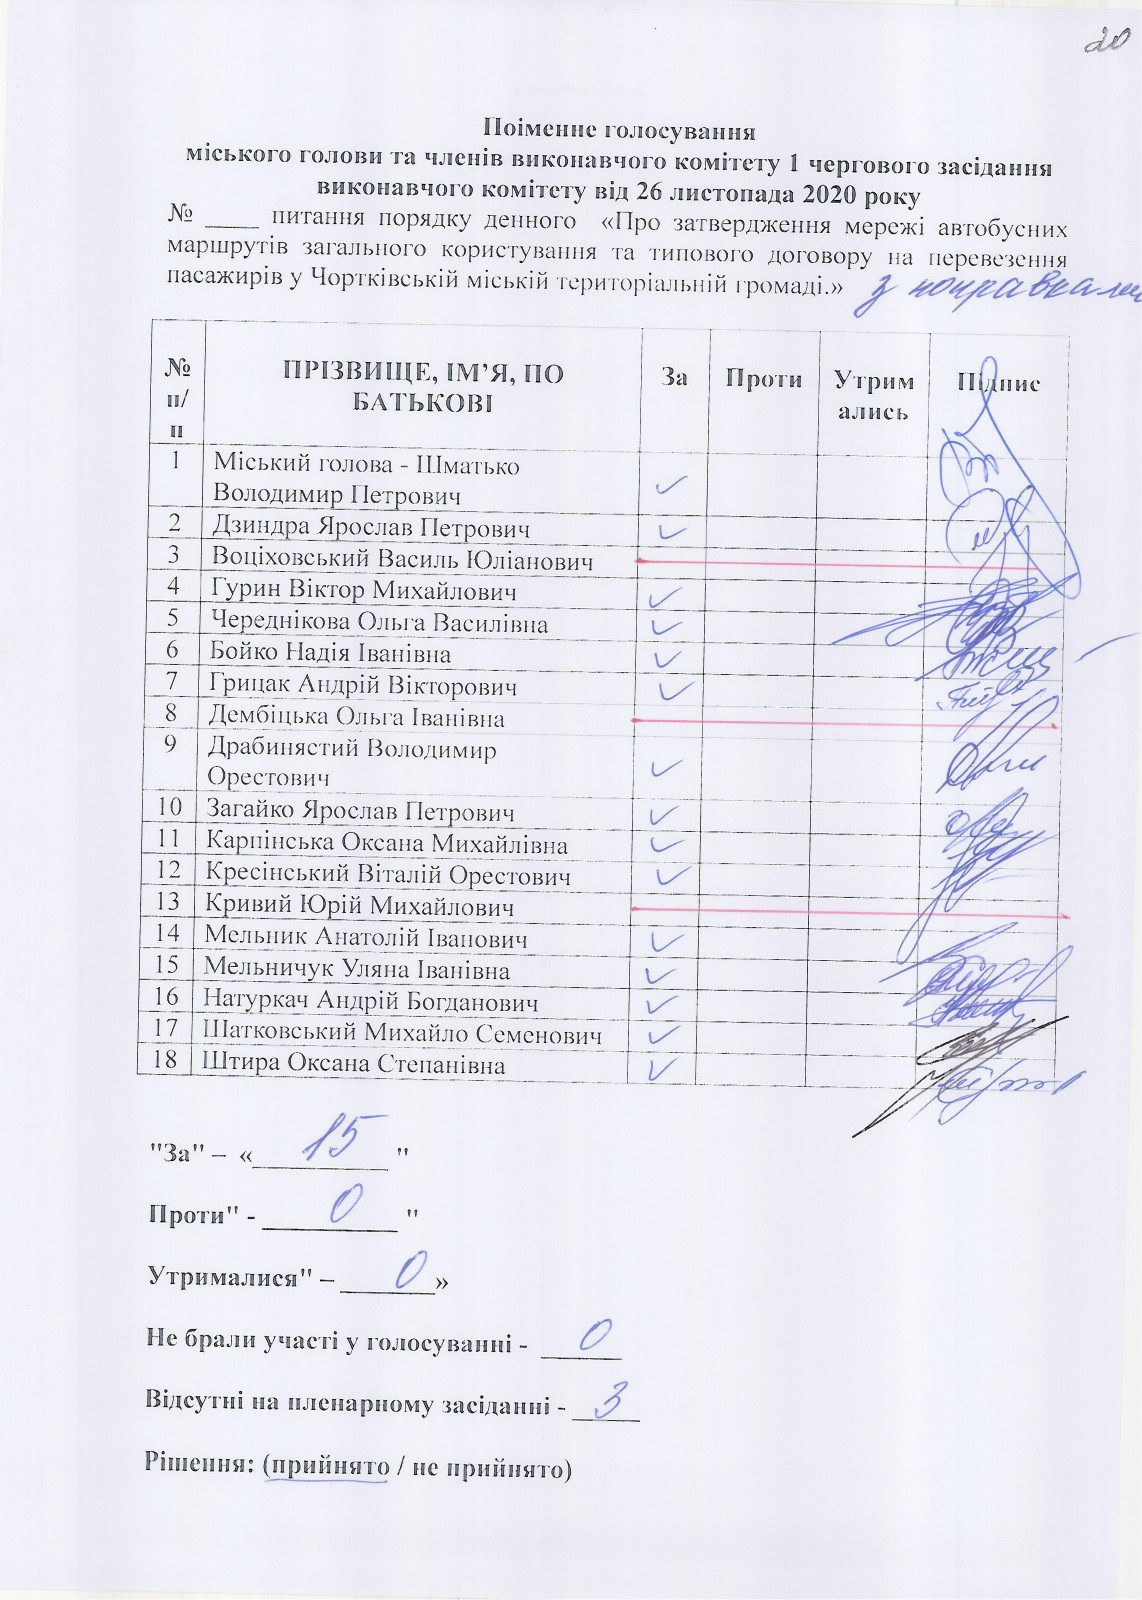 20
Поіменне голосування
міського голови та членів виконавчого комітету 1 чергового засідання
виконавчого комітету від 26 листопада 2020 року
№ ____ питання порядку денного «Про затвердження мережі автобусних
маршрутів загального користування та типового договору на перевезення
пасажирів у Чортківській міській територіальній громаді.» з поправками
№ п/п ПРІЗВИЩЕ, ІМ’Я, ПО БАТЬКОВІ За Проти Утримались Підпис
1 Міський голова - Шматько
Володимир Петрович
2 Дзиндра Ярослав Петрович
3 Воціховський Василь Юліанович
4 Гурин Віктор Михайлович
5 Череднікова Ольга Василівна
6 Бойко Надія Іванівна
7 Грицак Андрій Вікторович
8 Дембіцька Ольга Іванівна
9 Драбинястий Володимир
Орестович
10 Загайко Ярослав Петрович
11 Карпінська Оксана Михайлівна
12 Кресінський Віталій Орестович
13 Кривий Юрій Михайлович
14 Мельник Анатолій Іванович
15 Мельничук Уляна Іванівна
16 Натуркач Андрій Богданович
17 Шатковський Михайло Семенович
18 Штира Оксана Степанівна
"За" – «___15___ "
Проти" - ___0___ "
Утрималися" – ___0___»
Не брали участі у голосуванні - ___0___
Відсутні на пленарному засіданні - ___3___
Рішення: (прийнято / не прийнято)